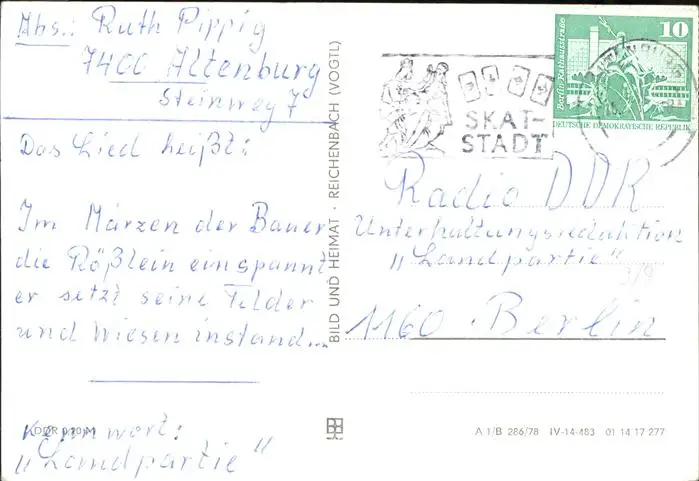 Abs.: Ruth Pippig
7400 Altenburg
Steinweg 7
Das Lied heißt:
Im Märzen der Bauer
die Rößlein einspannt
er setzt seine Felder
und Wiesen instand...
Kennwort:
"Landpartie"
DDR 0,20 M
BILD UND HEIMAT · REICHENBACH (VOGTL)
SKAT-
STADT
10
Berlin, Rathausstraße
DEUTSCHE DEMOKRATISCHE REPUBLIK
Radio DDR
Unterhaltungsredaktion
"Landpartie"
1160 Berlin
A 1/B 286/78 IV-14-483 01 14 17 277